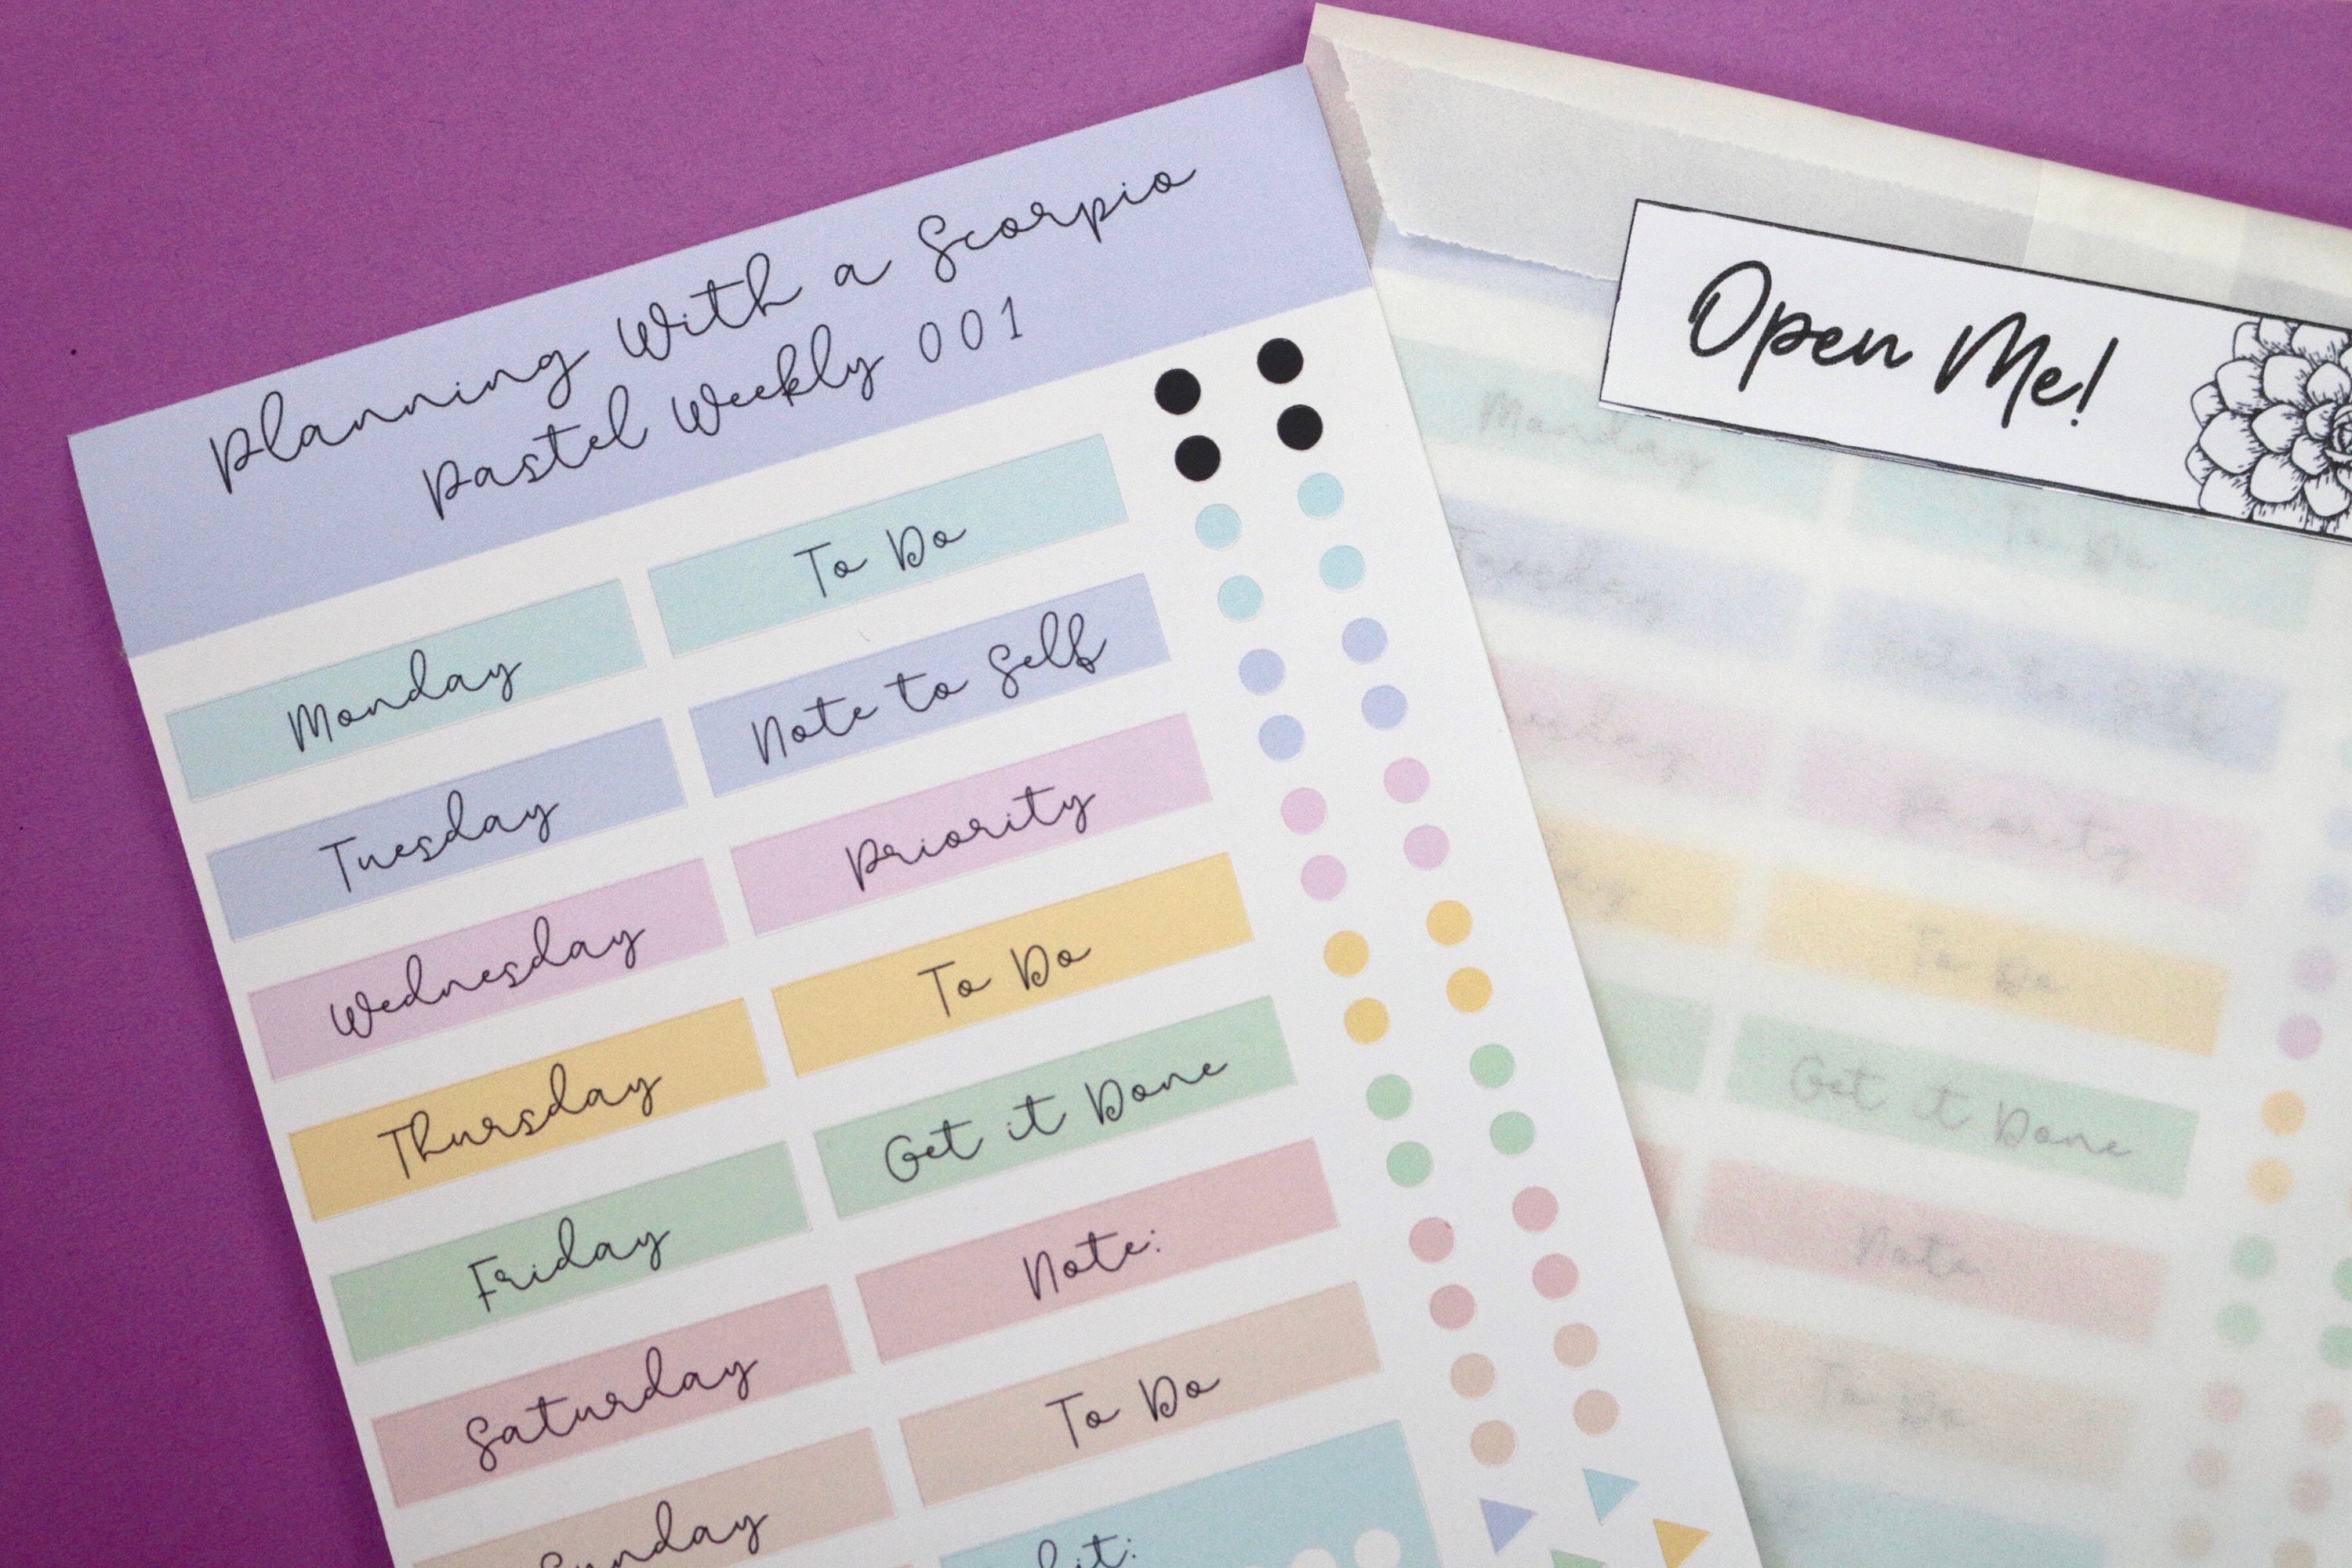 Planning With a Scorpio
Pastel Weekly 001
Monday
To Do
Tuesday
Note to Self
Wednesday
Priority
Thursday
To Do
Friday
Get it Done
Saturday
Note:
Sunday
To Do
Open Me!
Monday
To Do
Tuesday
Note to Self
Priority
To Do
Get it Done
Note:
To Do